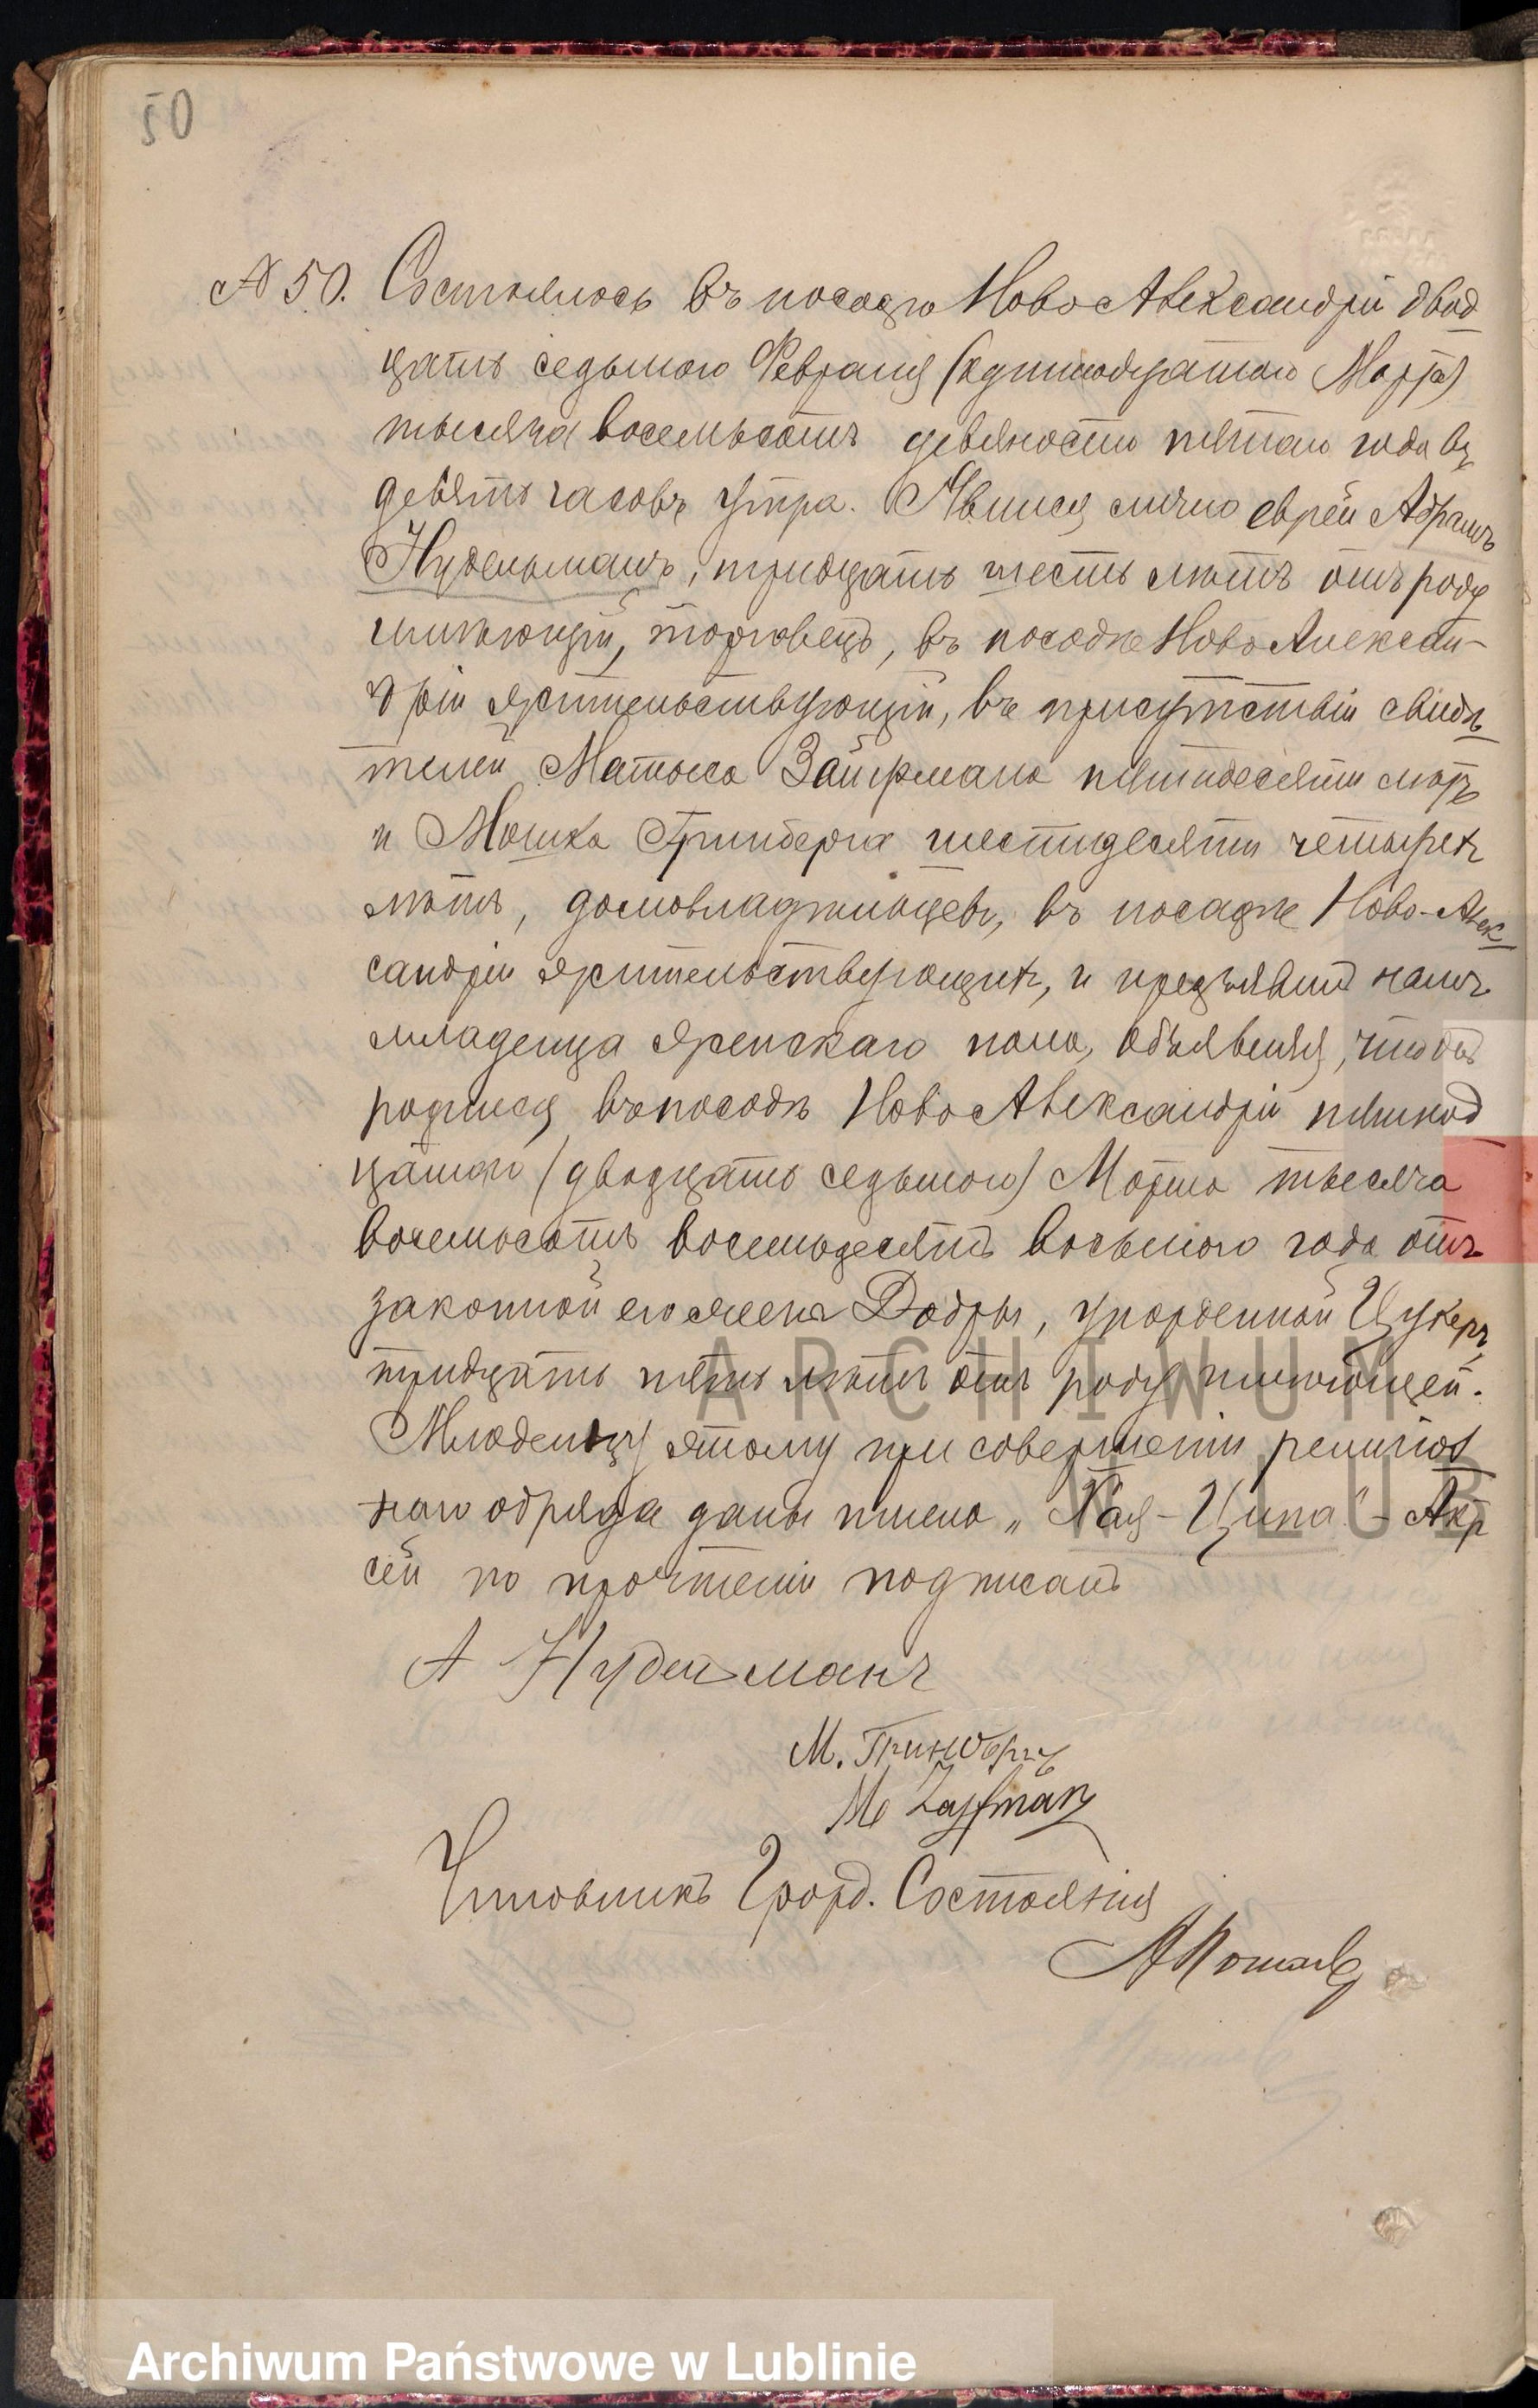 50
№ 50. Состоялось въ посадѣ Ново Александріи двад
цать седьмого Февраля (одинадцатого Марта)
тысяча восемьсотъ девяносто пятаго года въ
девять часовъ утра. Явился лично еврей Абрамъ
Нудельманъ, тридцать шесть лѣтъ отъ роду
имѣющій, торговецъ, въ посадѣ Ново Алексан-
дріи жительствующій, въ присутствіи свидѣ
телей Матыса Зайфмана пятидесяти лѣтъ
и Мошка Гринберга шестидесяти четырехъ
лѣтъ, домовладѣльцевъ, въ посадѣ Ново-Алек
сандріи жительствующихъ, и предъявилъ намъ
младенца женскаго пола, объявляя, что онъ
родился въ посадѣ Ново Александріи пятнад
цатаго (двадцать седьмого) Марта тысяча
восемьсотъ восемьдесятъ восьмого года отъ
законной его жены Добры, урожденной Цукеръ,
тридцать пять лѣтъ отъ роду имѣющей.
Младенцу этому при совершеніи религіоз
наго обряда дано имено „Хая-Ципа“ - Актъ
сей по прочтеніи подписанъ
А Нудельманъ
М. Гринбергъ
M Zayfman
Чиновникъ Гражд. Состоянія
ARCHIWUM
W LUB
Archiwum Państwowe w Lublinie